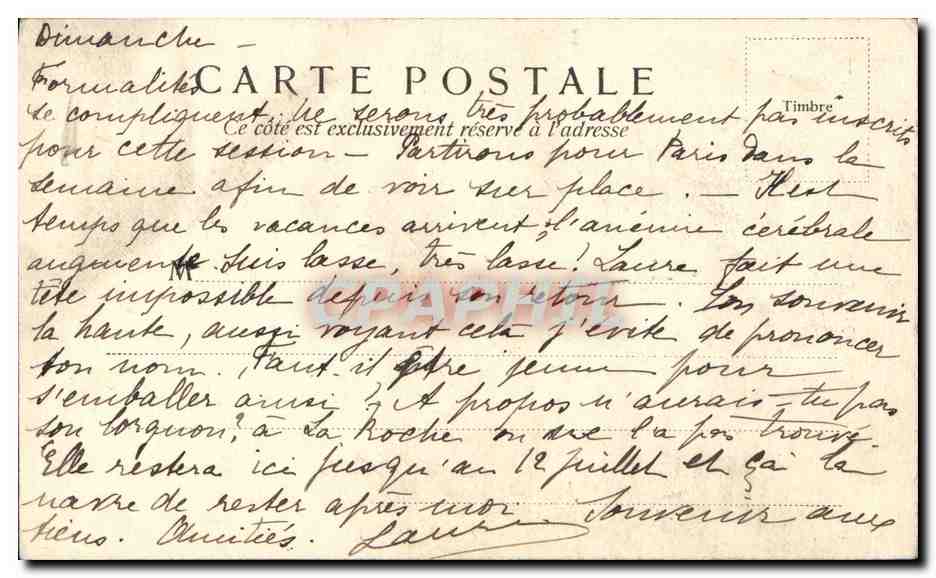 Dimanche —
Formalités
CARTE POSTALE
se compliquent. Ne serons très probablement pas inscrits
Timbre
Ce côté est exclusivement réservé à l'adresse
pour cette session — Partirons pour Paris dans la
semaine afin de voir sur place. — Il est
temps que les vacances arrivent, l'anémie cérébrale
augmente. Suis lasse, très lasse! Laure fait une
M
tête impossible depuis son retour. Ton souvenir
CPAPHIL
la hante, aussi voyant cela j'évite de prononcer
ton nom. Faut-il être jeune pour
s'emballer ainsi? A propos n'aurais-tu pas
son lorgnon? à La Roche on ne l'a pas trouvé.
Elle restera ici jusqu'au 12 juillet et ça la
navre de rester après moi Souvenir aux
tiens. Amitiés.